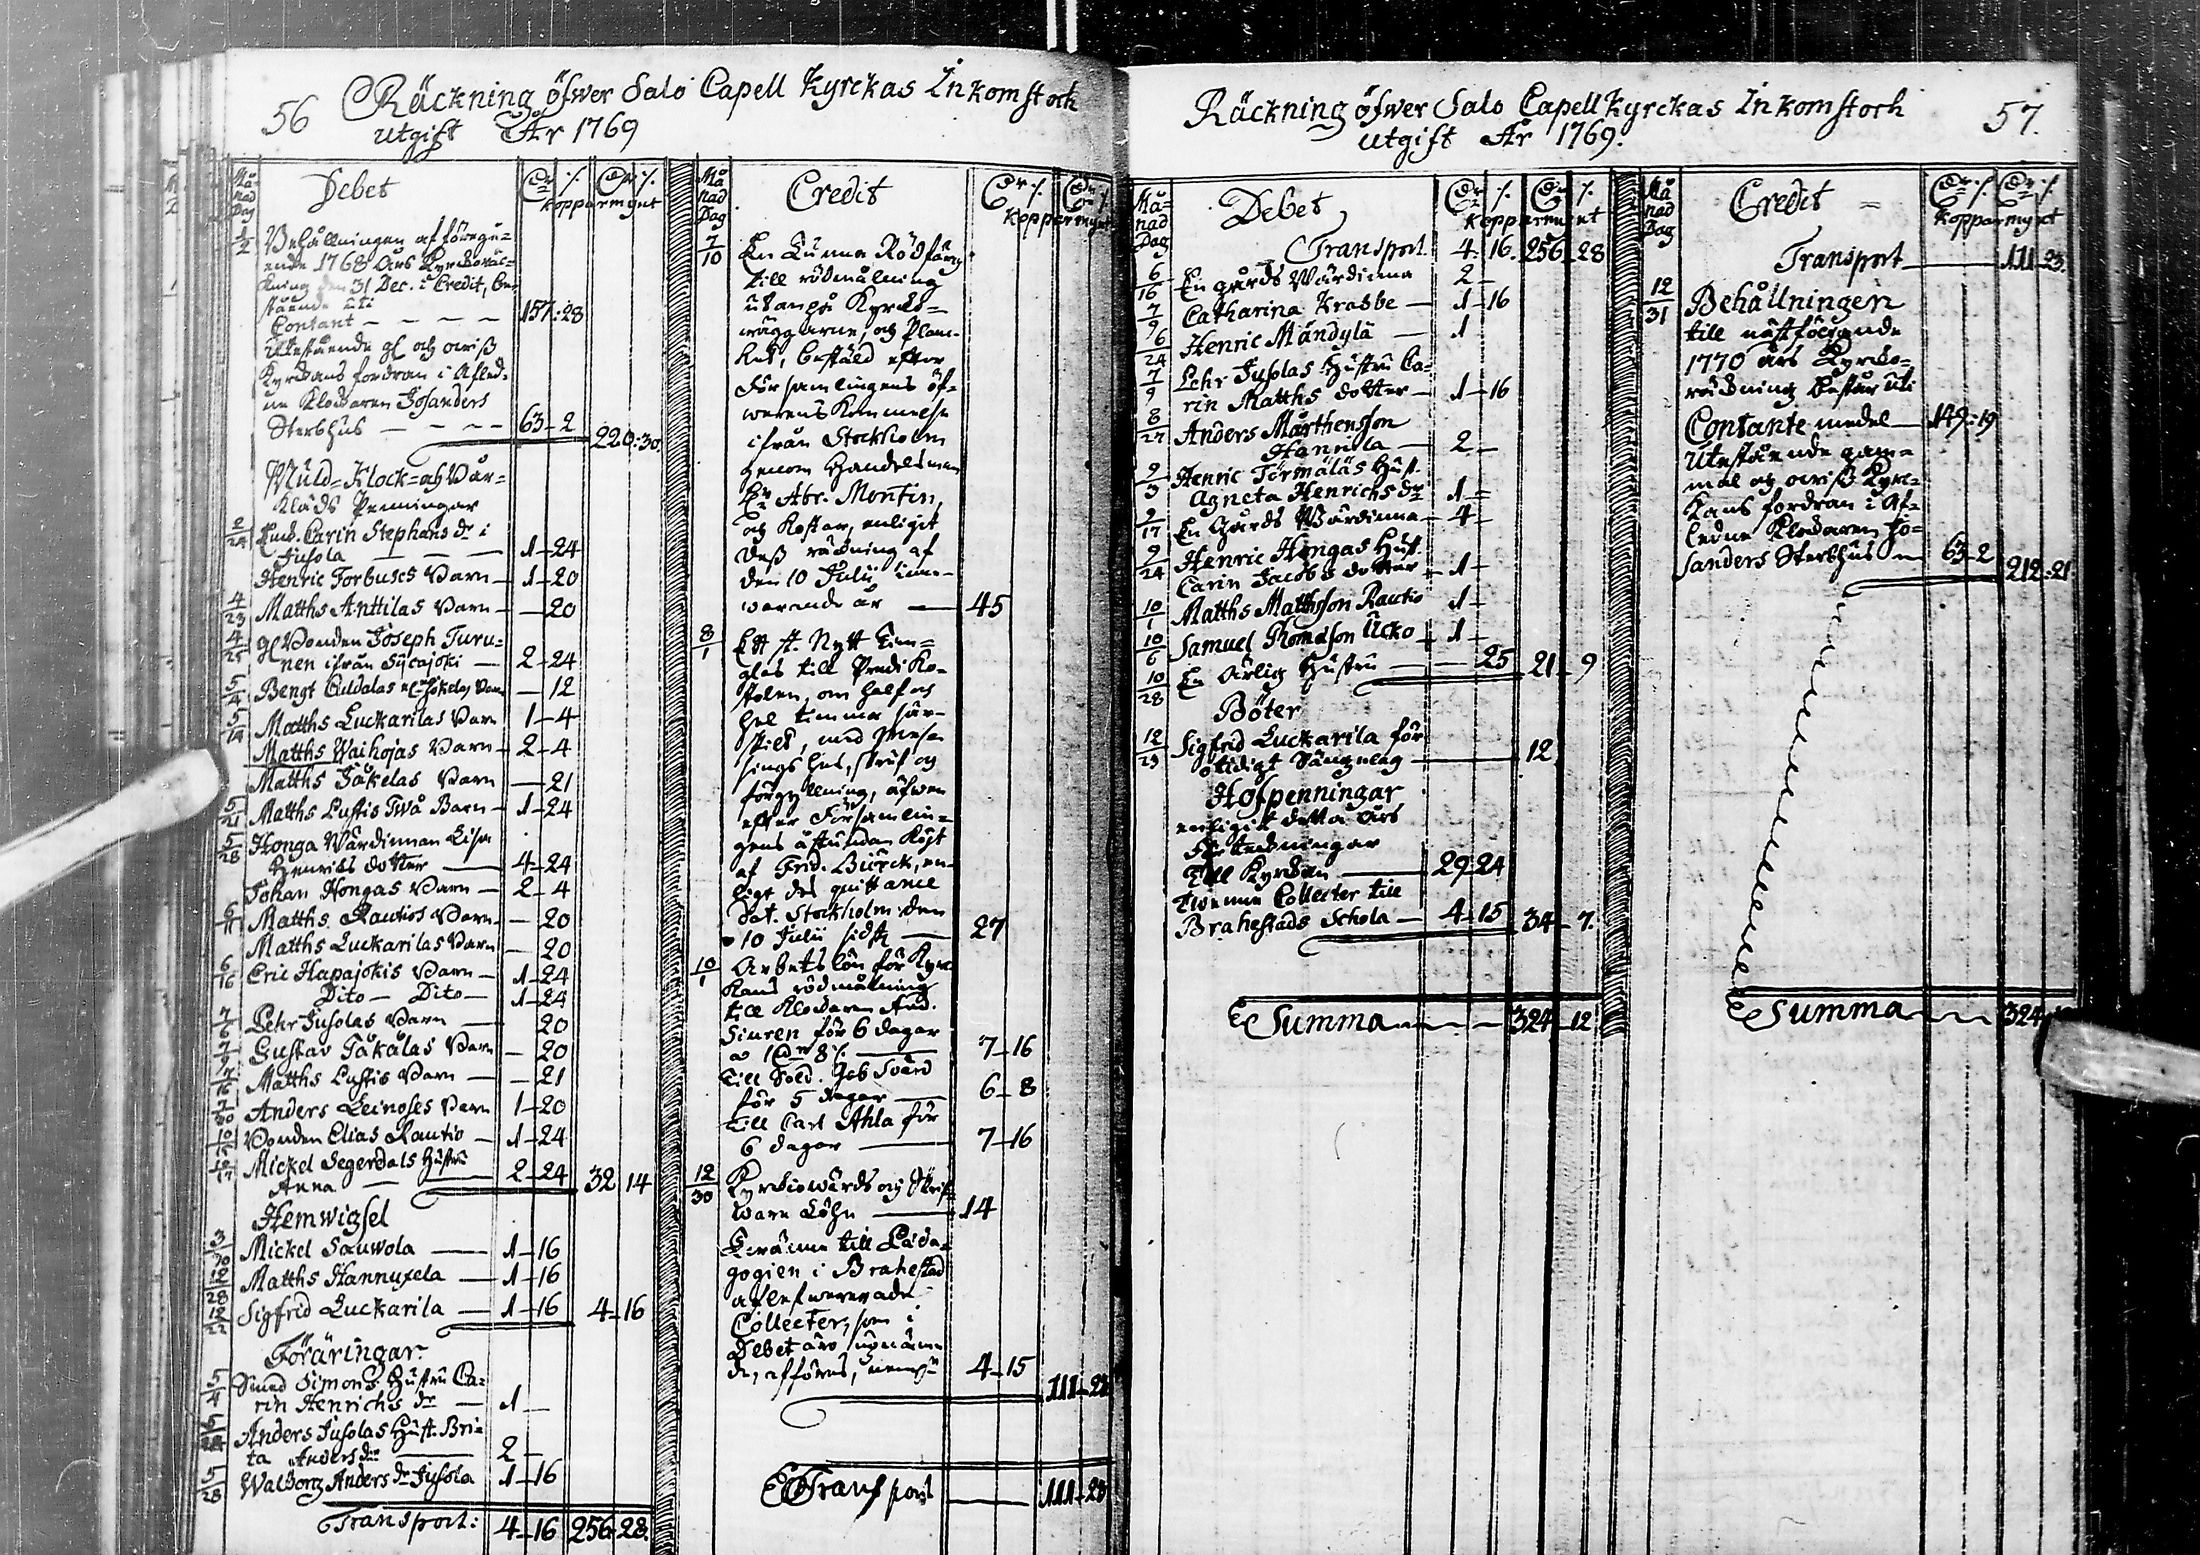 56 Räckning öfwer Salo Capell Kyrckas Inkomst och
utgift År 1769
Må=
nad
Dag
Debet
Dr ./. Dr ./.
Kopparmynt
1/2 Behållningen af föregå=
ende 1768 års Kyrckoräk=
ning den 31 Dec. i Credit, be=
stående uti
Contant — — — — 157:28
Utestående gl och owiß
Kyrckans fordran i Afled=
ne Klockaren Josanders
Sterbhus — — — — 63-2 220:30.
Muld= Klock= och Bår=
Kläds Penningar
2/24 Carin Stephans dr i
Jusola — — — 1-24
Henric Forbuses Barn — 1-20
4/23 Matths Anttilas Barn — —20
4/25 gl Bonden Joseph Turu=
nen ifrån Sijcajoki — 2-24
5/4 Bengt —12
5/14 Matths Luckarilas Barn 1-4
Matths Waihojas Barn — 2-4
Matths Jåkelas Barn —21
5/21 Matths Lustis Twå Barn — 1-24
5/28 Honga Wärdinnan Lisa
Henrics dotter — 4-24
Johan Hongas Barn — 2-4
Matths Rautios Barn — —20
Matths Luckarilas Barn —20
6/16 Eric Hapajokis Barn — 1-24
Dito — Dito — 1-24
Pehr Jusolas Barn — 20
Gustav Jåkålas Barn —20
Matths Lustis Barn — —21
Anders Leinoses Barn 1-20
Bonden Elias Rautio — 1-24
Mickel Segerdals Hustru
Anna — 2-24 32 14
Hemwigsel
Mickel Sauwola — 1-16
Matths Hannuxela — 1-16
Sigfrid Luckarila — 1-16 4-16
Föräringar
5/4 Smed Simons Hustru Ca=
rin Henrichs dr — 1—
Anders Jusolas Hust. Bri=
ta Anders dr — 2—
5/28 Walborg Anders dr Jusola 1-16
Transport: 4-16 256-28.
Må
nad
Dag
Credit
Dr ./. Dr ./.
Kopparmynt
7/10 En Tunna Rödfärg
till rödmålning
utanpå Kyrcko=
wäggarne och Plan=
ket, bestäld efter
Församlingens öf=
werens Kommelse
ifrån Stockholm
genom Handelsman
Hr Abr. Montin,
och Kostar, enligit
deß räckning af
den 10 Julii inne=
warande år — 45
8/1 Ett st. Nytt Tim=
glas till Prediko=
stolen, om half och
hel timma sär=
skilt, med Meß=
ings hus, skruf och
förgyllning, äfwen
efter Församlin=
gens åstundan Köpt
af Frid. Biörck, en=
ligt des quittance
Dat. Stockholm den
10 Julii sidstl — 27
10/1 Arbetslön för Kyr=
kans rödmålning
till Klockaren And.
Siuren för 6 dagar
a 1 Dr 8 ./. — 7-16
till Sold. Jab Swärd
för 5 dagar — 6-8
till Carl Ahla för
6 dagar — 7-16
12/30 Kyrckiowärds och Skrif=
ware Löhn — 14
Twänne till Päda=
gogien i Brahestad
aflefwererade
Collecter, som i
Debet äro upnämn=
de, afföres, 4-15
111-23
Transport — 111-23
Räckning öfwer Salo Capell Kyrckas Inkomst och 57.
utgift År 1769.
Må=
nad
Dag
Debet
Dr ./. Dr ./.
Kopparmynt
Transport 4-16. 256-28
6/16 En gårds Wärdinna 2—
7/9 Catharina Krabbe — 1-16
6/24 Henric Mändylä — 1
7/9 Pehr Jusolas Hustru Ca=
rin Matths dotter — 1-16
8/27 Anders Mårthensson
Hannila — 2—
9/3 Henric Törmäläs Hust.
Agneta Henrichs dr 1—
9/17 En Gårds Wärdinna — 4—
9/24 Henric Hongas Hust.
Carin Jacobs dotter — 1—
10/1 Matths Matthsson Rautio 1—
10/6 Samuel Thomasson Ucko — 1—
10/28 En Ärlig Hustru — — 25 21-9
Böter
12/29 Sigfrid Luckarila för
otidigt Sänglag — 12
Håfpenningar
enligit detta års
förteckningar
till Kyrckan — 29-24
twenne Collecter till
Brahestads Schola — 4-15 34-7.
Summa — 324-12
Må
nad
Dag
Credit
Dr ./. Dr ./.
Kopparmynt
Transport — 111-23.
12/31 Behållningen
till nästföljande
1770 års Kyrcko=
räckning består uti
Contante medel — 149:19
Utestående gam=
mal och owiß Kyrc=
kans fordran i Af=
ledne Klockaren Jo=
sanders Sterbhus — 63-2 212:21
Summa — 324